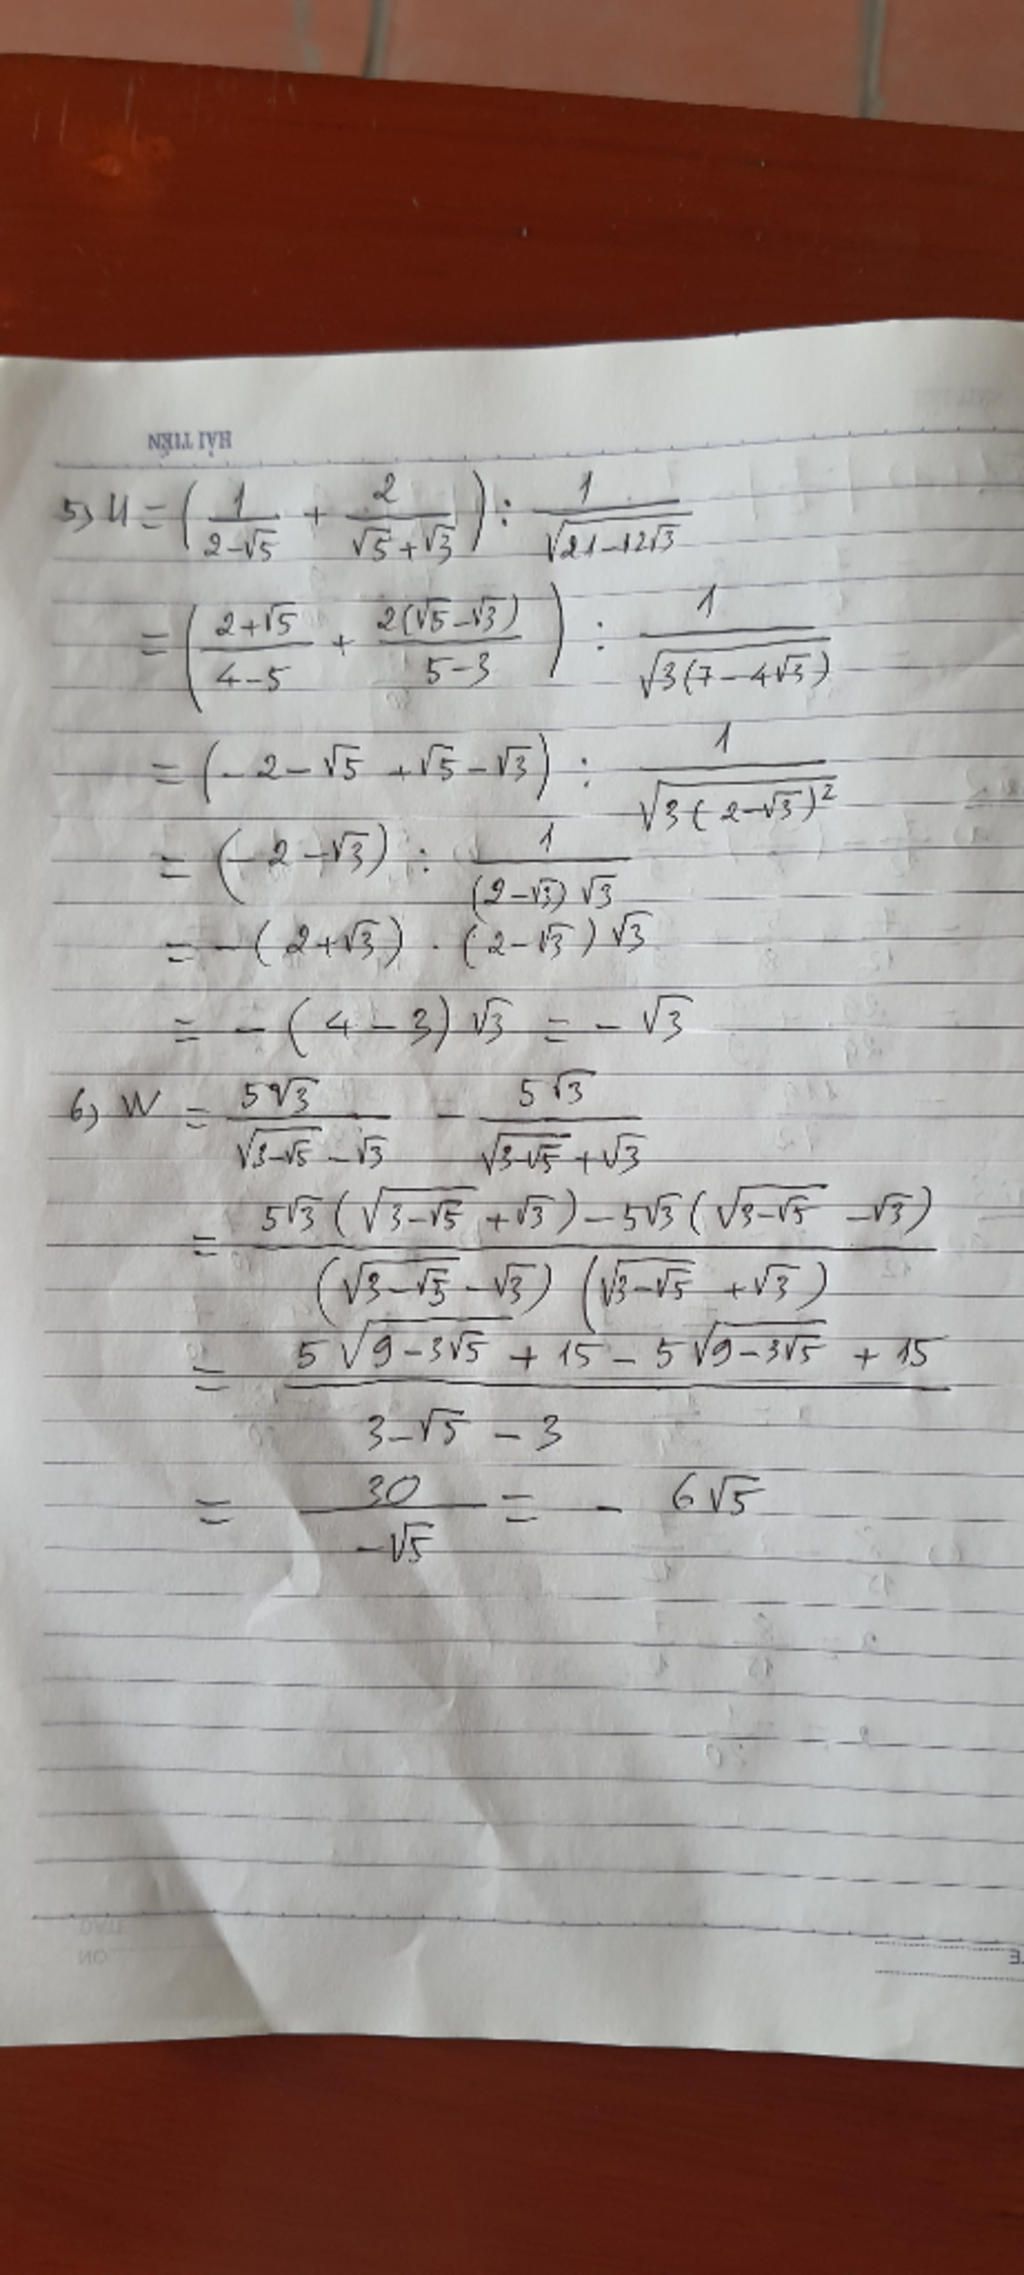 HẢI TIẾN
5) U = (1/(2-√5) + 2/(√5+√3)) : 1/√(21-12√3)
= ((2+√5)/(4-5) + 2(√5-√3)/(5-3)) : 1/√(3(7-4√3))
= (-2-√5+√5-√3) : 1/√(3(2-√3)²)
= (-2-√3) : 1/((2-√3)√3)
= -(2+√3) . (2-√3)√3
= -(4-3)√3 = -√3
6) W = 5√3/(√(3-√5)-√3) - 5√3/(√(3-√5)+√3)
= (5√3(√(3-√5)+√3)-5√3(√(3-√5)-√3))/((√(3-√5)-√3)(√(3-√5)+√3))
= (5√(9-3√5)+15-5√(9-3√5)+15)/(3-√5-3)
= 30/(-√5) = -6√5